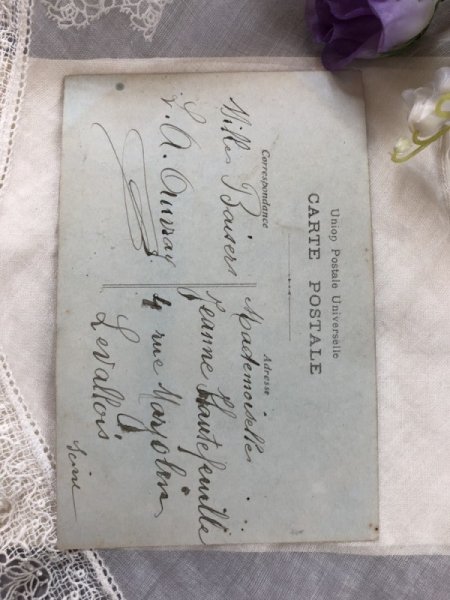 Union Postale Universelle
CARTE POSTALE
Correspondance
Adresse
Mille Baisers
L. A. Auvray
Mademoiselle
Jeanne Hautefeuille
4 rue Marjolin
Levallois
Seine